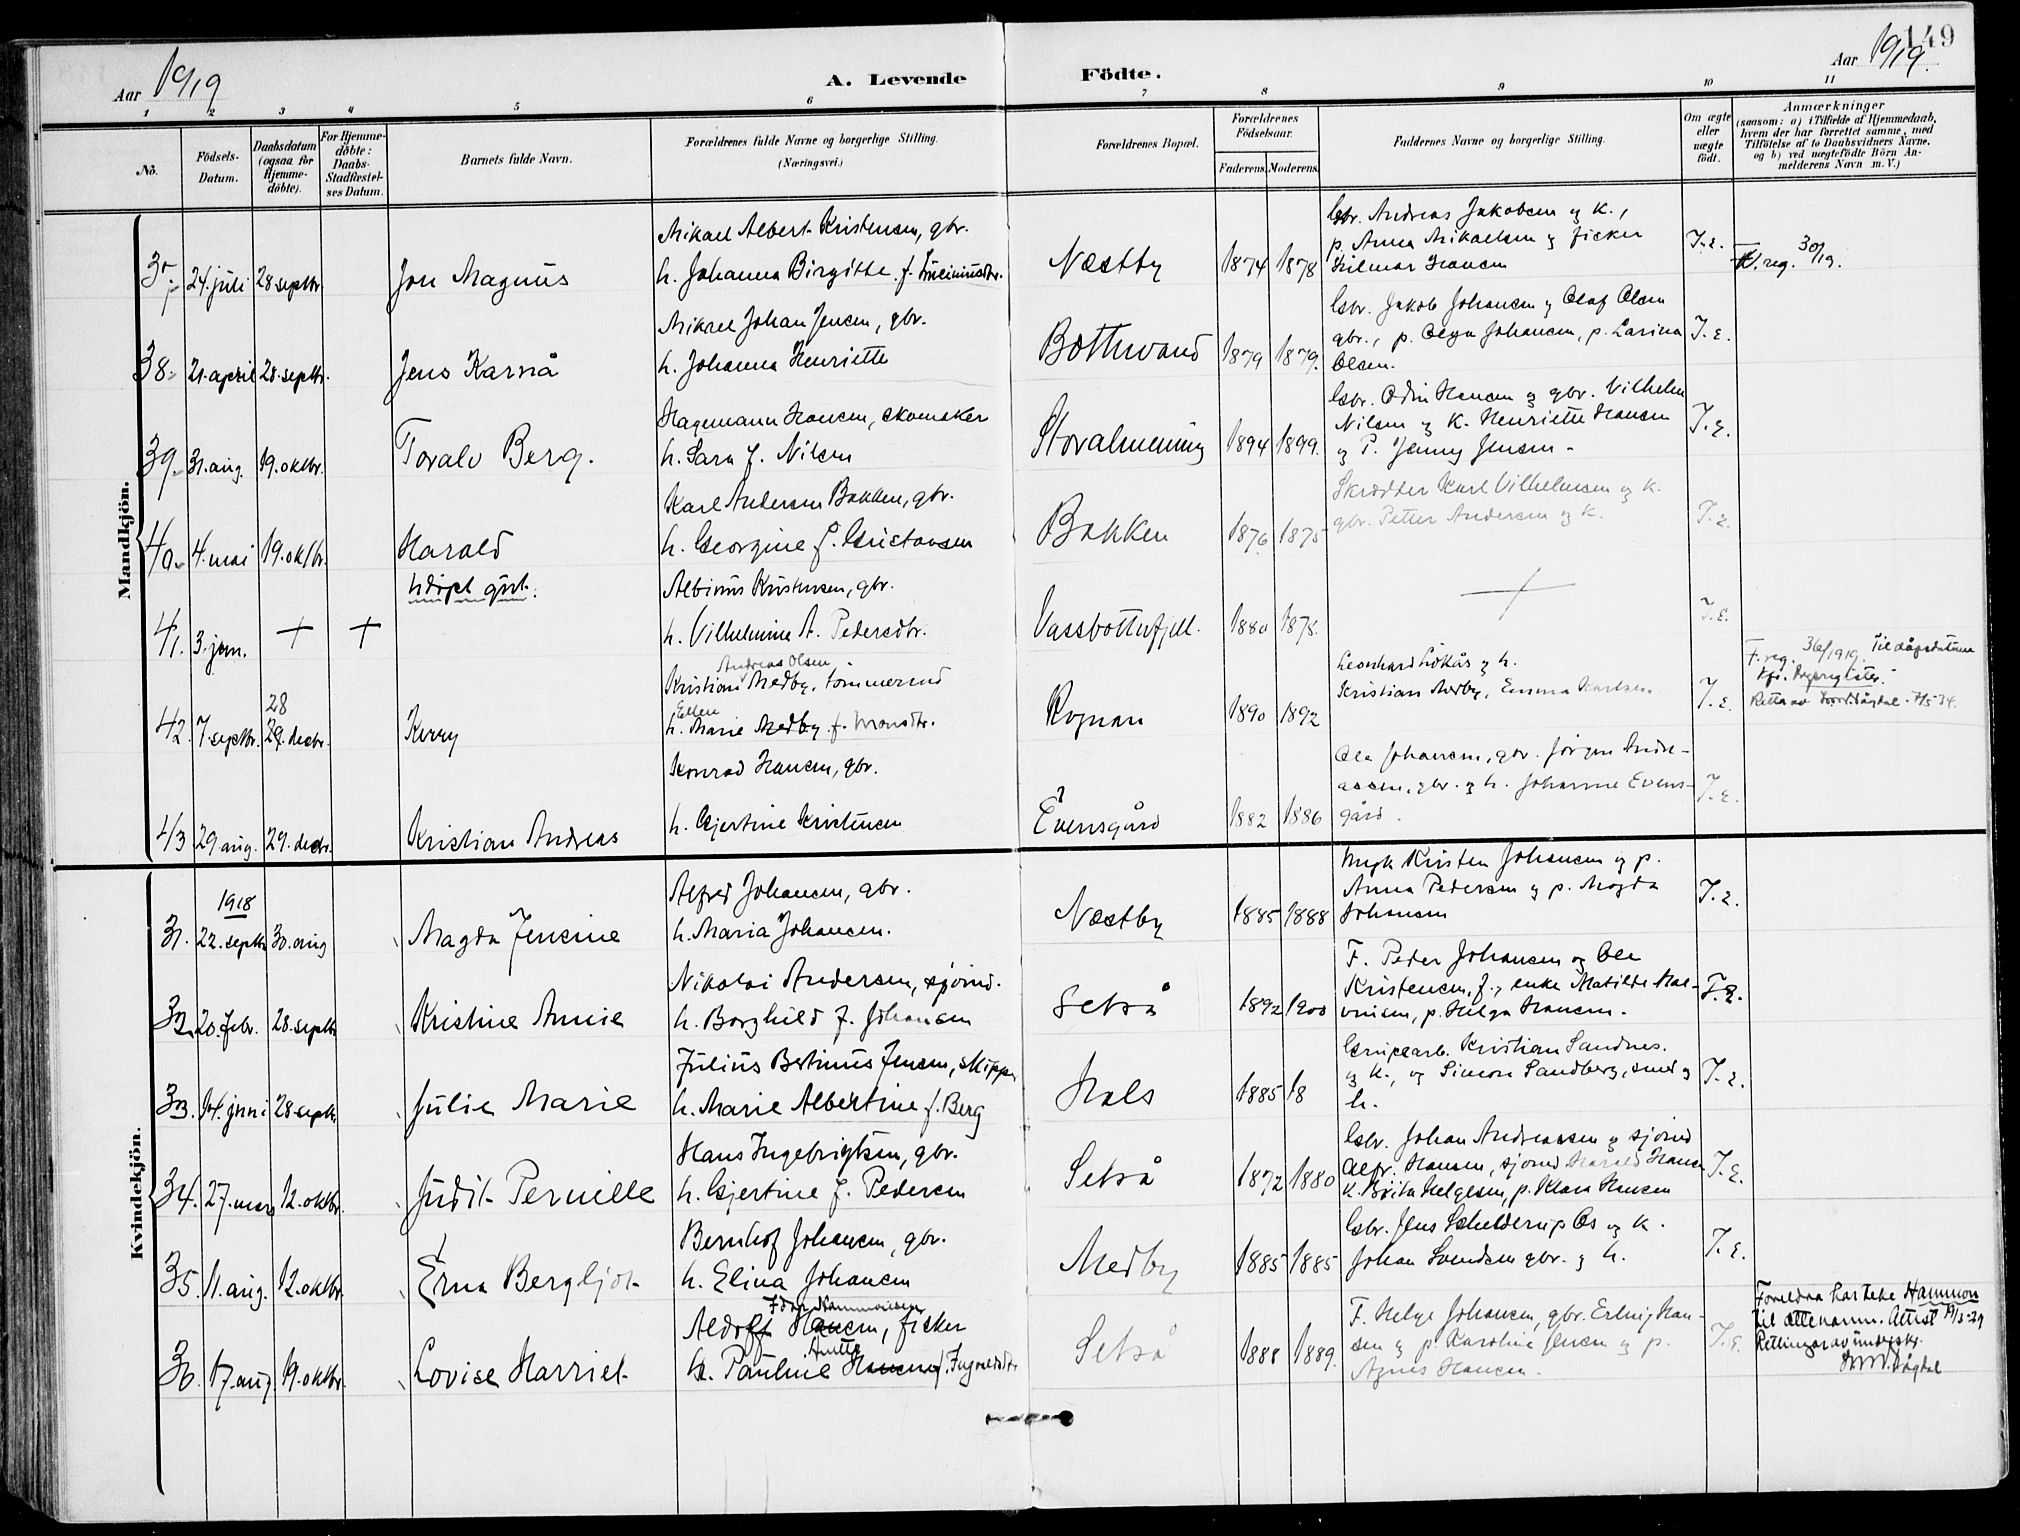 149
Aar 1919
A. Levende Födte.
Aar 1919.
1 2 3 4 5 6 7 8 9 10 11
No.
Födsels-
Datum.
Daabsdatum
(ogsaa for
Hjemme-
döbte).
For Hjemme-
döbte:
Daabs-
Stadfæstel-
ses Datum.
Barnets fulde Navn.
Forældrenes fulde Navne og borgerlige Stilling.
(Næringsvei.)
Forældrenes Bopæl.
Forældrenes
Födselsaar.
Faderens. Moderens.
Faddernes Navne og borgerlige Stilling.
Om ægte
eller
uægte
födt.
Anmærkninger
(saasom: a) i Tilfælde af Hjemmedaab,
hvem der har forrettet samme, med
Tilföielse af to Daabsvidners Navne,
og b) ved uægtefödte Börn An-
melderens Navn m. V.)
Mandkjön.
37. 24. juli 28 septbr. Jon Magnus
Mikael Albert Kristensen, gbr.
h. Johanna Birgitte f.
Næstby 1874 1878
Gbr. Andreas Jakobsen og k.,
p. Anna Mikaelsen og fisker
Hilmar Hansen
I. E.
F. reg. 30/19.
38. 21. april 28. septbr. Jens Karnå
Mikael Johan Jensen, gbr.
h. Johanna Henriette
Bottnvand 1879 1879.
Gbr. Jakob Johansen og Olaf Olsen
gbr., p. Olga Johansen, p. Larina
Olsen.
I. E.
39. 31. aug. 19. oktbr. Toralv Berg.
Hagemann Hansen, skomaker
h. Sara f. Nilsen
Storalmenning 1894 1899.
Gbr. Odin Hansen og gbr. Vilhelm
Nilsen og k. Henriette Hansen
og P. Jenny Jensen -
I. E.
40. 4. mai 19. oktbr. Harald
Karl Andersen Bakken, gbr.
h. Georgine f. Gustavsen
Bakken 1876 1875
Skrædder Karl Vilhelmsen og k.
gbr. Petter Andersen og k.
I. E.
41. 3. jan. + + Udöpt gut.
Albinus Kristensen, gbr.
h. Vilhelmine A. Pedersdtr.
Vassbottenfjell. 1880 1878.
+
I. E.
42. 7. septbr. 28 29. decbr. Kerry
Andreas Olsen
Kristian Medby, tömmermd
Ellen
h. Marie Medby f. Monsdtr.
Rognan 1890 1892
Leonhard Lidkås og h.
Kristian Medby, Emma Karlsen.
I. E.
F. reg. 36/1919. Til dåpsdatum
Retta av Dågdal. 7/5 34.
43 29 aug. 29. decbr. Kristian Andreas
Konrad Hansen, gbr.
h. Gjertine Kristensen
Evensgård 1882 1886
Ola Johansen, gbr. Jörgen Andre-
assen, gbr. og h. Johanne Evens-
gård.
I. E.
Kvindekjön.
1918
31. 22. septbr 30. aug Magda Jensine
Alfred Johansen, gbr.
h. Maria Johansen.
Næstby 1885 1888
Ungk Kristen Johansen og p.
Anna Pedersen og p. Magda
Johansen
I. E.
32. 20. febr. 28. septbr Kristine Annie
Nikolai Andersen, sjömd.
h. Borghild f. Johansen
Setså 1892 1900
F. Peder Johansen og Ole
Kristensen, f., enke Matilde Hal-
vorsen, p. Helga Hansen.
I. E.
33. 14. juni 28 septbr. Julie Marie
Julius Bertinus Jensen, skipper
h. Marie Albertine f. Berg
Hals 1885 18
Grubearb. Kristian Sandnes.
og k., og Simon Sandberg, smed og
h.
I. E.
34. 27. mars 12. oktbr. Judit Pernille
Hans Ingebrigtsen, gbr.
h. Gjertine f. Pedersen
Setså 1872 1880
Gbr. Johan Andreassen og sjömd
Alfr. Hansen, sjömd Harald Hansen
K. Brita Helgesen, p. Klara Hansen
I. E.
35. 11. aug. 12. oktbr. Erna Bergljot
Bernhof Johansen, gbr.
h. Elina Johansen
Medby 1885 1885
Gbr. Jens Schelderup Os og k.
Johan Svendsen gbr. og h.
I. E.
36. 17. aug 19. oktbr. Lovise Harriet
Adolf Hansen, fisker
h. Pauline Hansen f. Ingvaldsdtr
Setså 1888 1889.
F. Helge Johansen, gbr. Erling Han-
sen og p. Karoline Jensen og p.
Agnes Hansen.
I. E.
Foreldra har teke Hammon
til ættenamn. Attest 19/3-29
Rettinga av underskr.
Dågdal